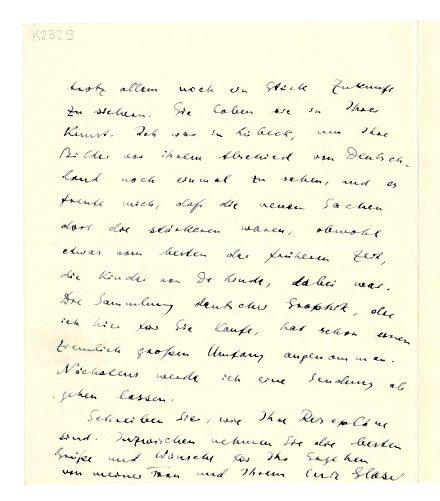 K2329
trotz allem noch ein Stück Zukunft
zu sichern. Sie haben sie in Ihrer
Kunst. Ich war in Lübeck, um Ihre
Bilder vor ihrem Abschied von Deutsch-
land noch einmal zu sehen, und es
freute mich, daß die neuen Sachen
dort die stärkeren waren, obwohl
etwas vom besten der früheren Zeit,
die Kinder von Dr Linde, dabei war.
Die Sammlung deutscher Graphik, die
ich hier für Sie kaufe, hat schon einen
ziemlich großen Umfang angenommen.
Nächstens werde ich eine Sendung ab
gehen lassen.
Schreiben Sie, wie Ihre Reisepläne
sind. Inzwischen nehmen Sie die besten
Grüße und Wünsche für Ihr Ergehen
von meiner Frau und Ihrem Curt Glaser